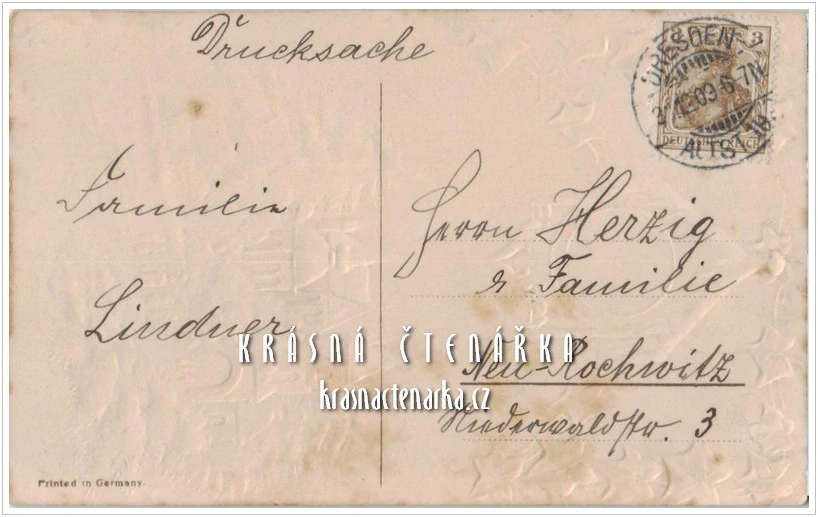 Drucksache
3
DEUTSCHES REICH
DRESDEN
12.09. 6-7N
ALTST.
Familie
Lindner
Herrn Herzig
& Familie
Neu-Rochwitz
Niederwaldstr. 3
KRÁSNÁ ČTENÁŘKA
krasnactenarka.cz
Printed in Germany.